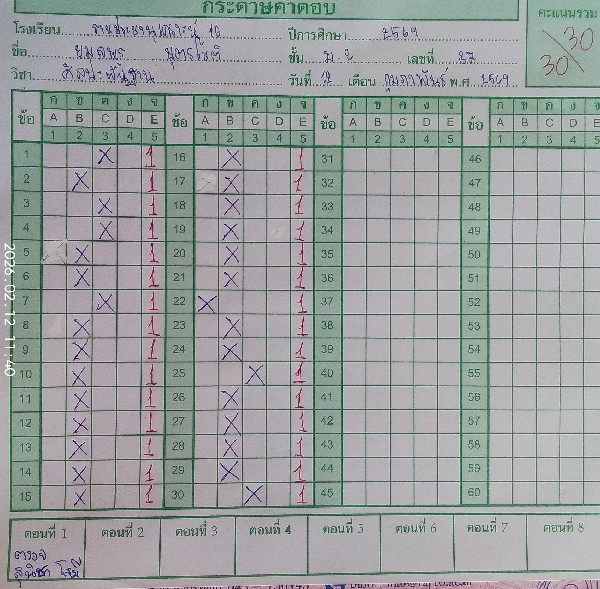 กระดาษคำตอบ
คะแนนรวม
30
30
โรงเรียน ราชประชานุเคราะห์ 16 ปีการศึกษา 2569
ชื่อ ชั้น ม.2 เลขที่ 27
วิชา ศิลปะพื้นฐาน วันที่ 12 เดือน กุมภาพันธ์ พ.ศ. 2569
ข้อ ก ข ค ง จ ข้อ ก ข ค ง จ ข้อ ก ข ค ง จ ข้อ ก ข ค ง จ
A B C D E A B C D E A B C D E A B C D E
1 2 3 4 5 1 2 3 4 5 1 2 3 4 5 1 2 3 4 5
1 X 1 16 X 1 31 46
2 X 1 17 X 1 32 47
3 X 1 18 X 1 33 48
4 X 1 19 X 1 34 49
5 X 1 20 X 1 35 50
6 X 1 21 X 1 36 51
7 X 1 22 X 1 37 52
8 X 1 23 X 1 38 53
9 X 1 24 X 1 39 54
10 X 1 25 X 1 40 55
11 X 1 26 X 1 41 56
12 X 1 27 X 1 42 57
13 X 1 28 X 1 43 58
14 X 1 29 X 1 44 59
15 X 1 30 X 1 45 60
ตอนที่ 1 ตอนที่ 2 ตอนที่ 3 ตอนที่ 4 ตอนที่ 5 ตอนที่ 6 ตอนที่ 7 ตอนที่ 8
ตรวจ
2026.02.12 11:40